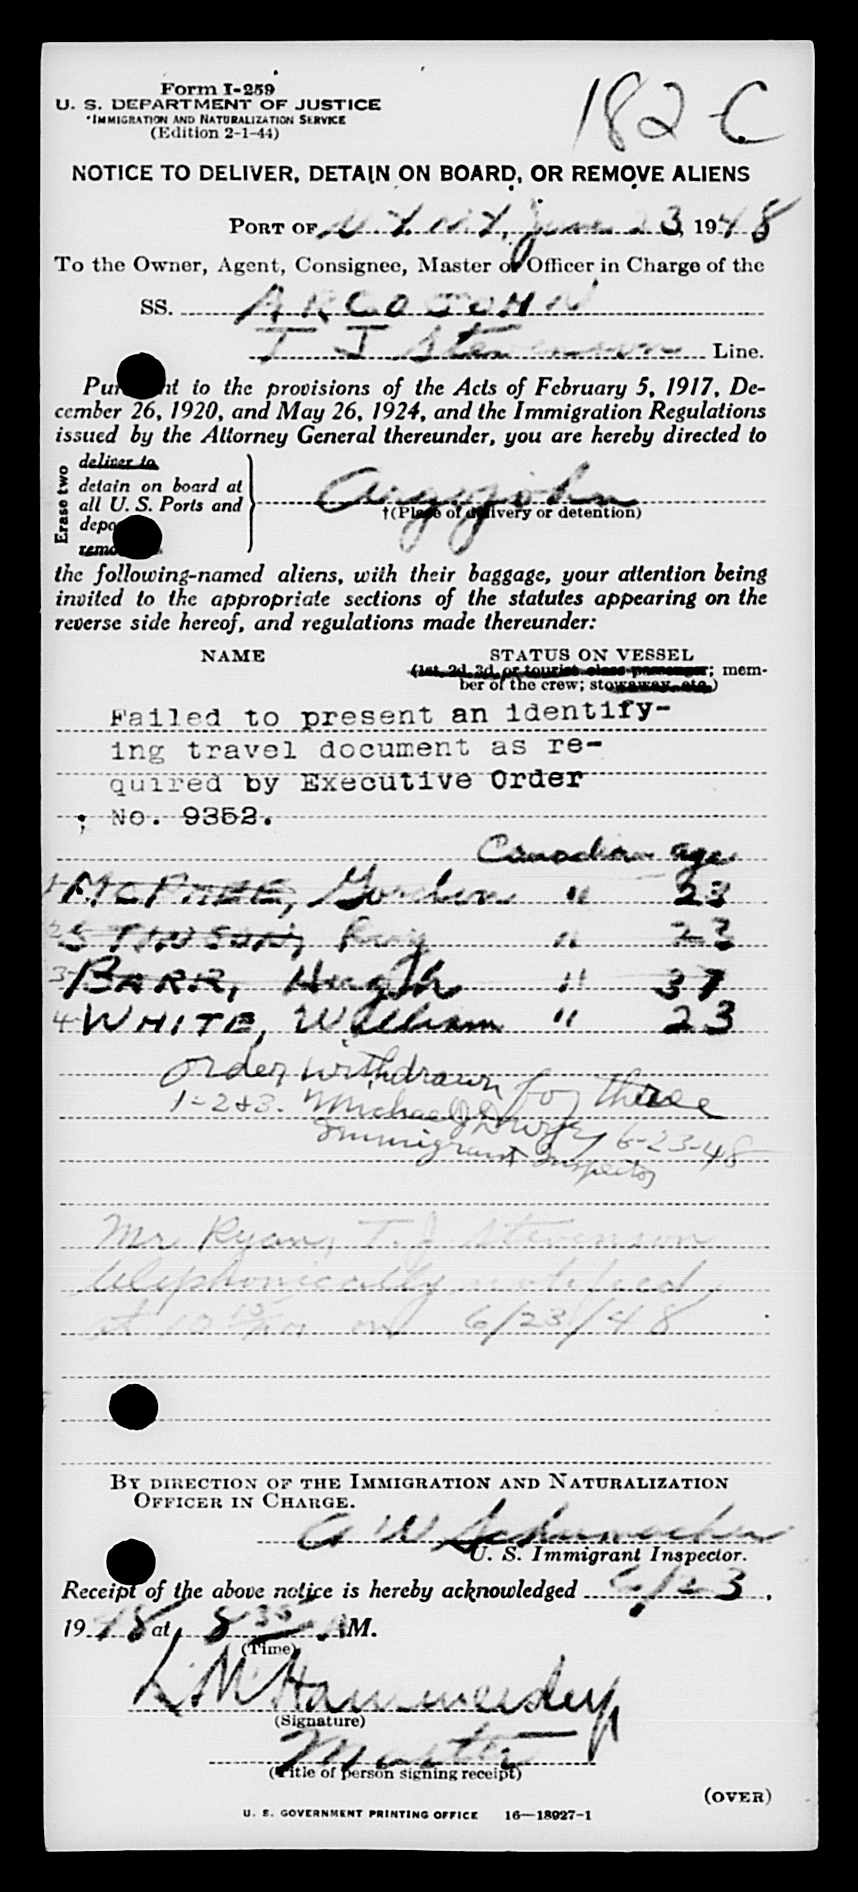 Form I-259
U. S. DEPARTMENT OF JUSTICE
IMMIGRATION AND NATURALIZATION SERVICE
(Edition 2-1-44)
182-C
NOTICE TO DELIVER, DETAIN ON BOARD, OR REMOVE ALIENS
PORT OF N.Y. N.Y., June 23, 1948
To the Owner, Agent, Consignee, Master or Officer in Charge of the
SS. ARGOJOHN
T J Stevenson Line.
Pursuant to the provisions of the Acts of February 5, 1917, De-
cember 26, 1920, and May 26, 1924, and the Immigration Regulations
issued by the Attorney General thereunder, you are hereby directed to
Erase two
deliver to
detain on board at
all U. S. Ports and Argojohn
†(Place of delivery or detention)
the following-named aliens, with their baggage, your attention being
invited to the appropriate sections of the statutes appearing on the
reverse side hereof, and regulations made thereunder:
NAME STATUS ON VESSEL
(1st, 2d, 3d, or tourist class passenger; mem-
ber of the crew; stowaway, etc.)
Failed to present an identify-
ing travel document as re-
quired by Executive Order
No. 9352.
Canadian age
1 McPHEE, Gordon " 23
2 STINSON, Roy " 23
3 BARR, Hugh " 37
4 WHITE, William " 23
order withdrawn for three
1-2&3. Michael J Dwyer 6-23-48
Immigrant Inspector
Mr Ryan, T. J Stevenson
telephonically notified
at 10 15 AM on 6/23/48
BY DIRECTION OF THE IMMIGRATION AND NATURALIZATION
OFFICER IN CHARGE.
A W Schumacher
U. S. Immigrant Inspector.
Receipt of the above notice is hereby acknowledged 6/23,
1948 at 8 35 AM.
(Time)
(Signature)
Master
(Title of person signing receipt)
(OVER)
U. S. GOVERNMENT PRINTING OFFICE 16—18927-1